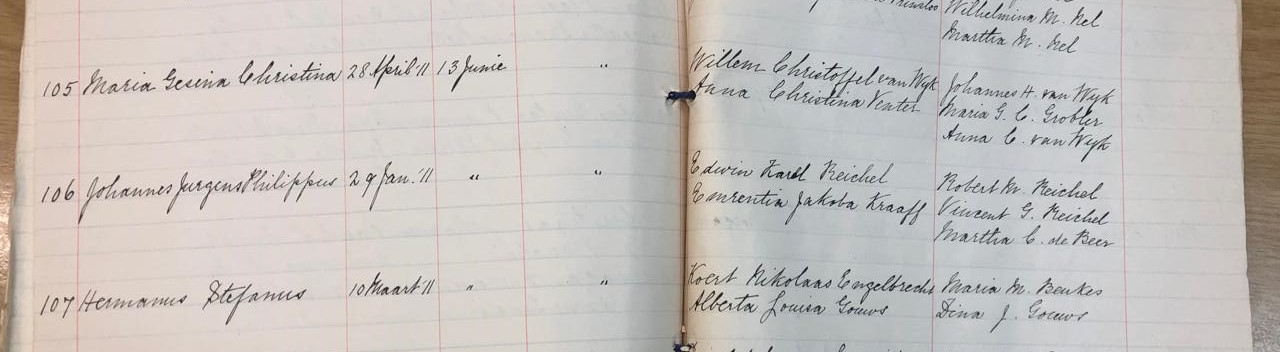 Prinsloo Wilhelmina M. Nel
Martha M. Nel
105 Maria Gesina Christina 28 April '11 13 Junie " Willem Christoffel van Wyk Johannes H. van Wyk
Anna Christina Venter Maria G. C. Grobler
Anna C. van Wyk
106 Johannes Jurgens Philippus 29 Jan. '11 " " Edwin Karel Reichel Robert M. Reichel
Emrentia Jakoba Kraaff Vincent G. Reichel
Martha C. de Beer
107 Hermanus Stefanus 10 Maart '11 " " Koert Nikolaas Engelbrecht Maria M. Beukes
Alberta Louisa Gouws Dina J. Gouws